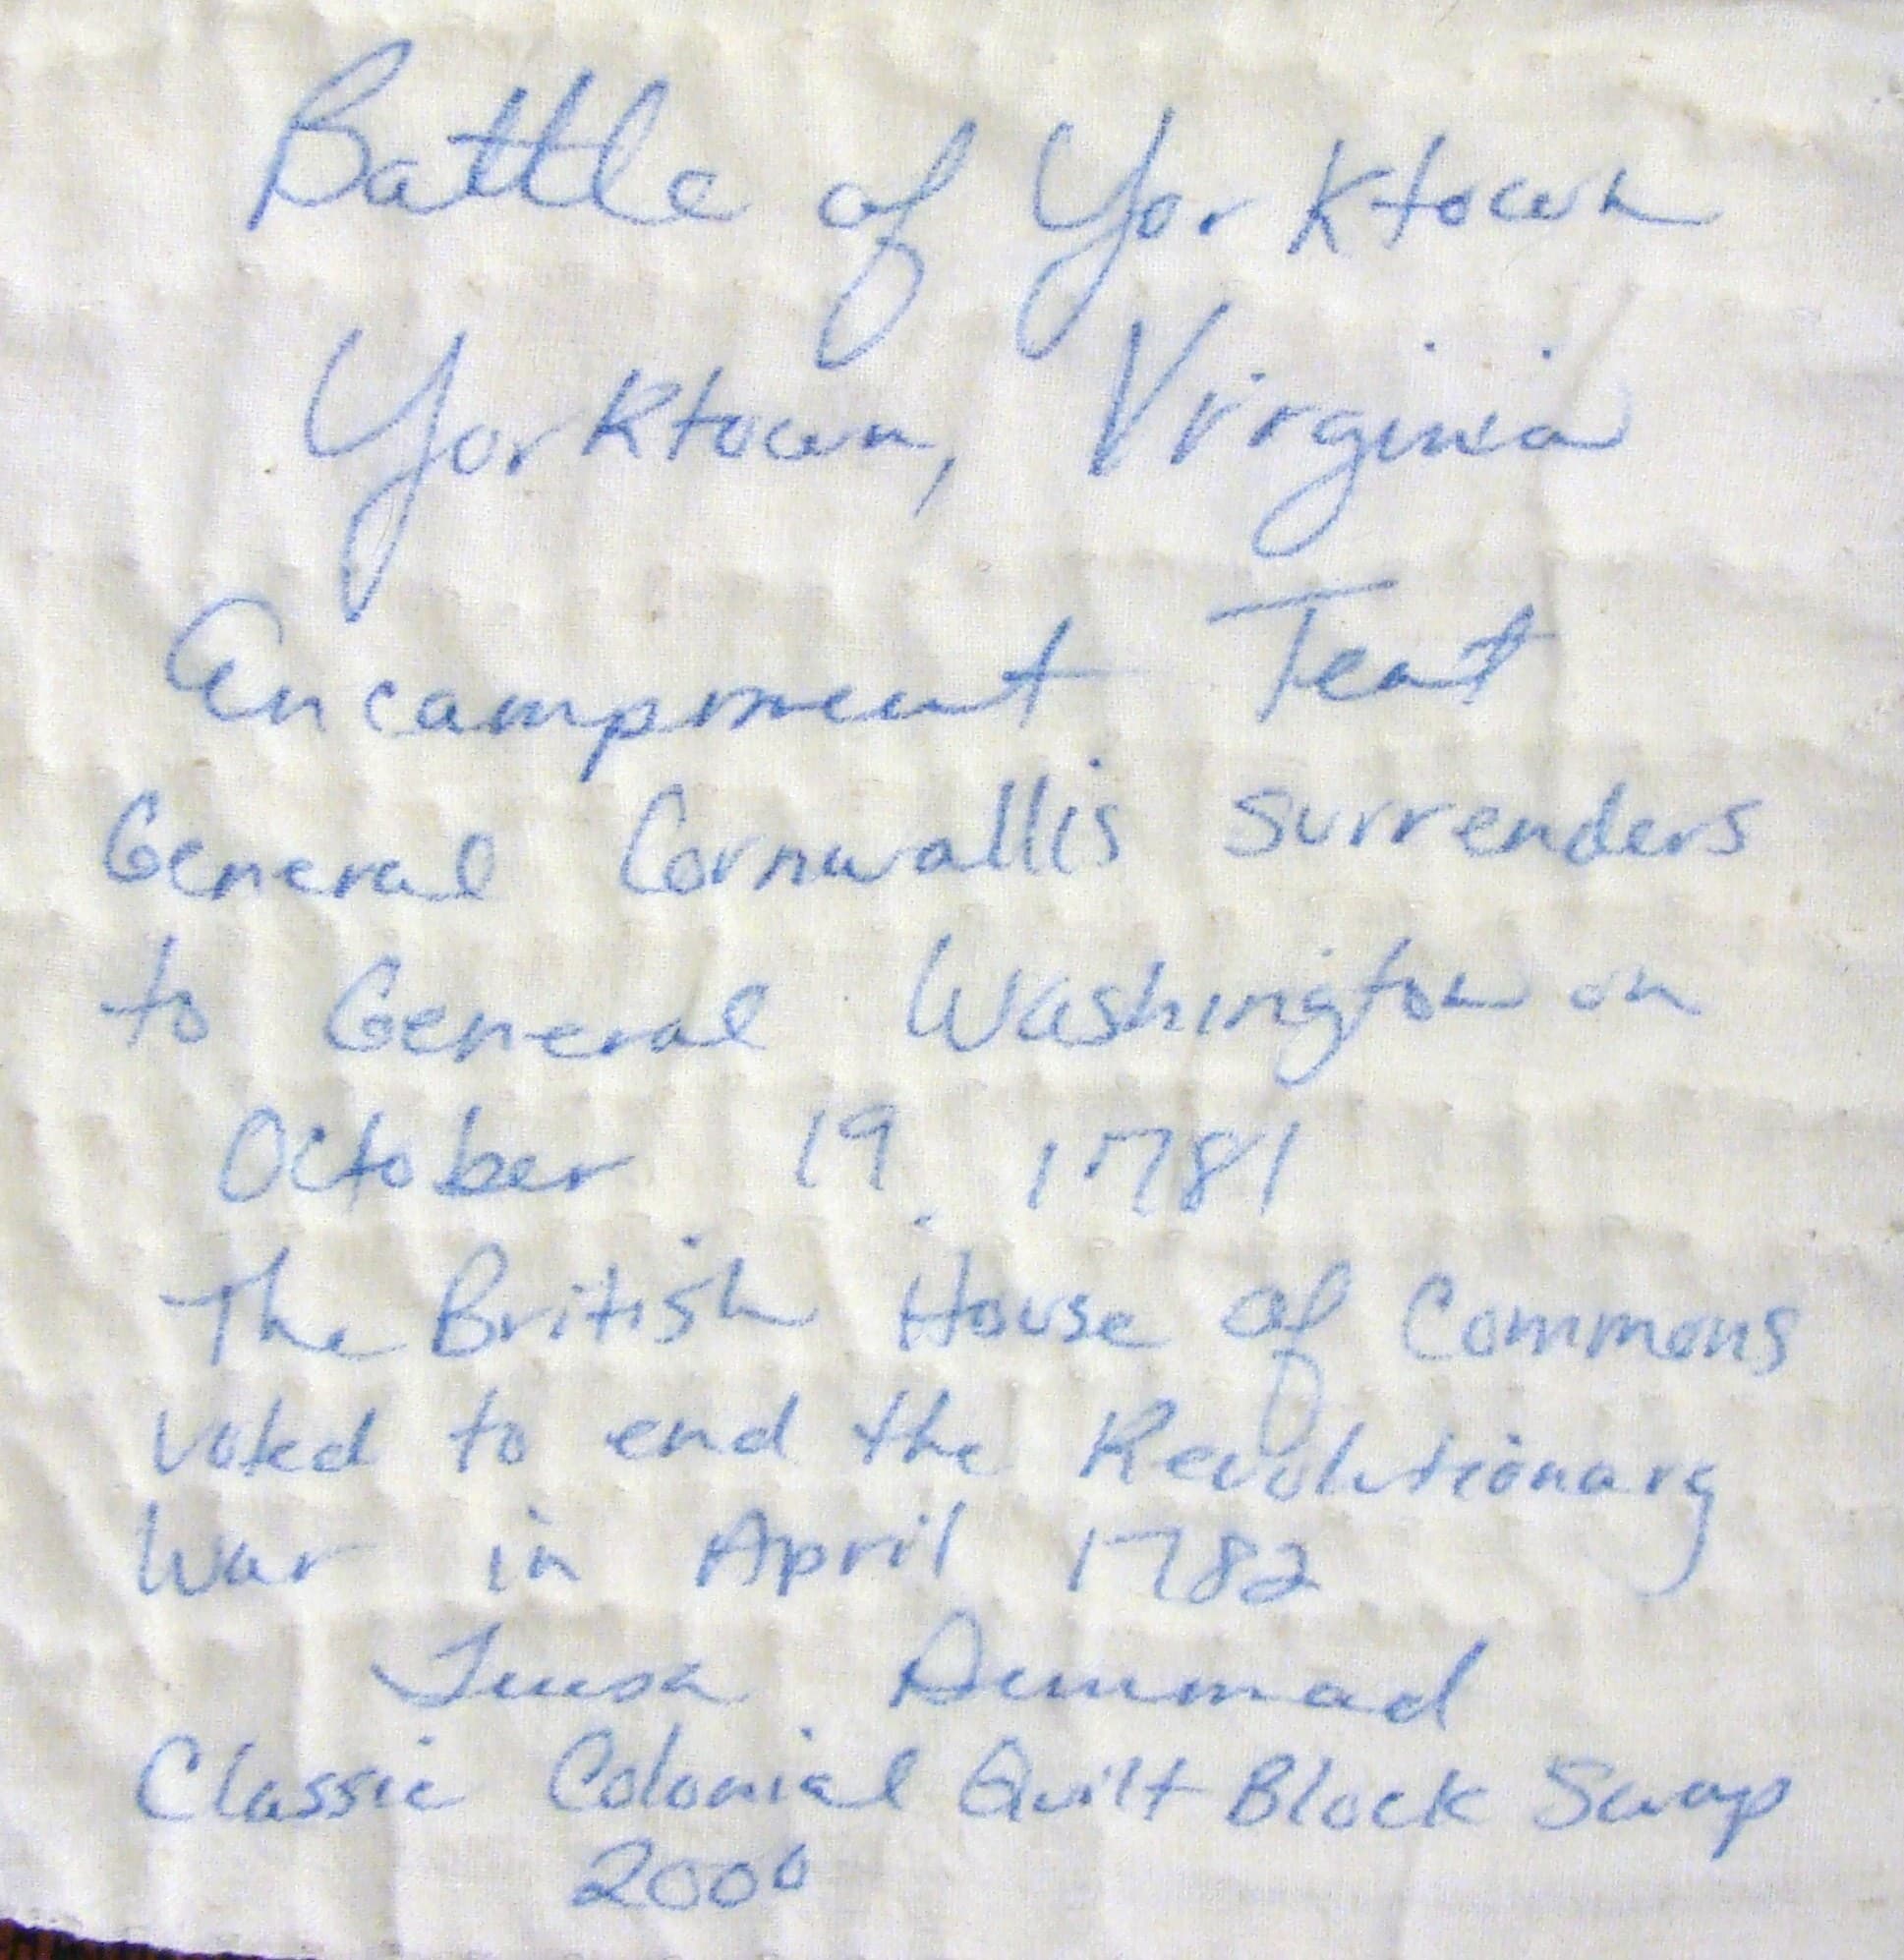 Battle of Yorktown
Yorktown, Virginia
Encampment Tent
General Cornwallis surrenders
to General Washington on
October 19, 1781
The British House of Commons
voted to end the Revolutionary
War in April 1782
Classic Colonial Quilt Block Swap